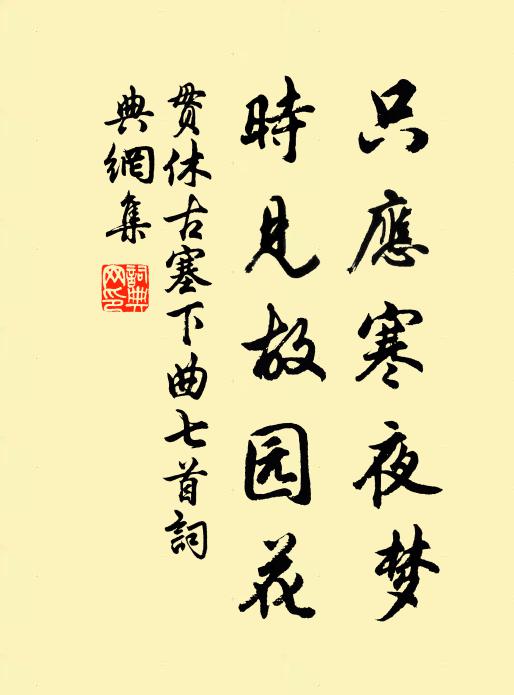 只應寒夜梦
時見故园花
貫休古塞下曲七首詞
典網集
詞典
网印